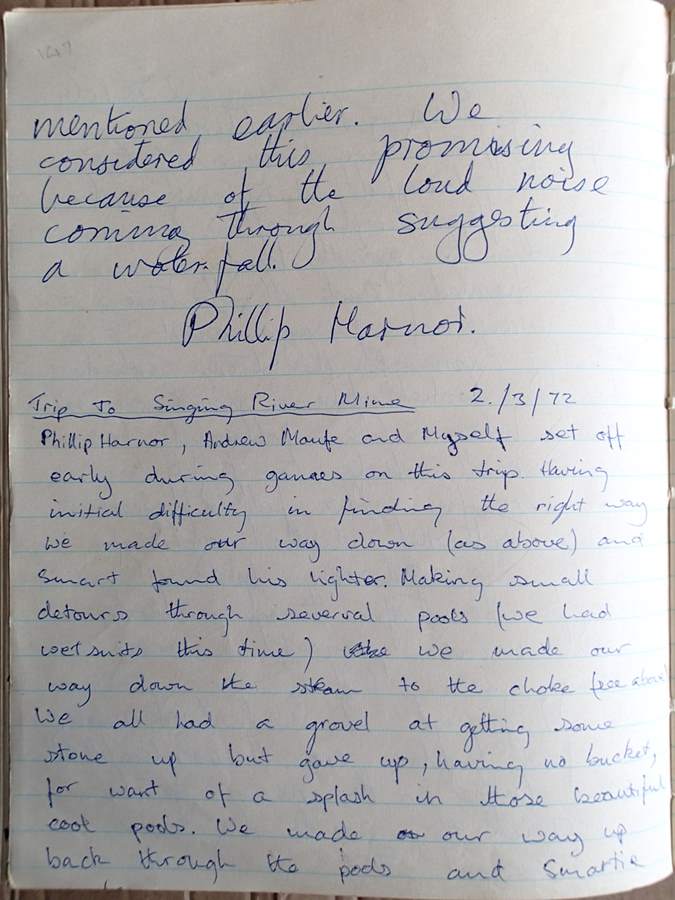 147
mentioned earlier. We
considered this promising
because of the loud noise
coming through suggesting
a waterfall.
Phillip Harnor.
Trip To Singing River Mine 2./3/72
Phillip Harnor, Andrew Maufe and Myself set off
early during games on this trip. Having
initial difficulty in finding the right way
we made our way down (as above) and
Smart found his lighter. Making small
detours through several pools (we had
wetsuits this time) we made our
way down the stream to the choke (see above)
We all had a grovel at getting some
stone up but gave up, having no bucket,
for want of a splash in those beautiful
cool pools. We made our way up
back through the pools and Smartie